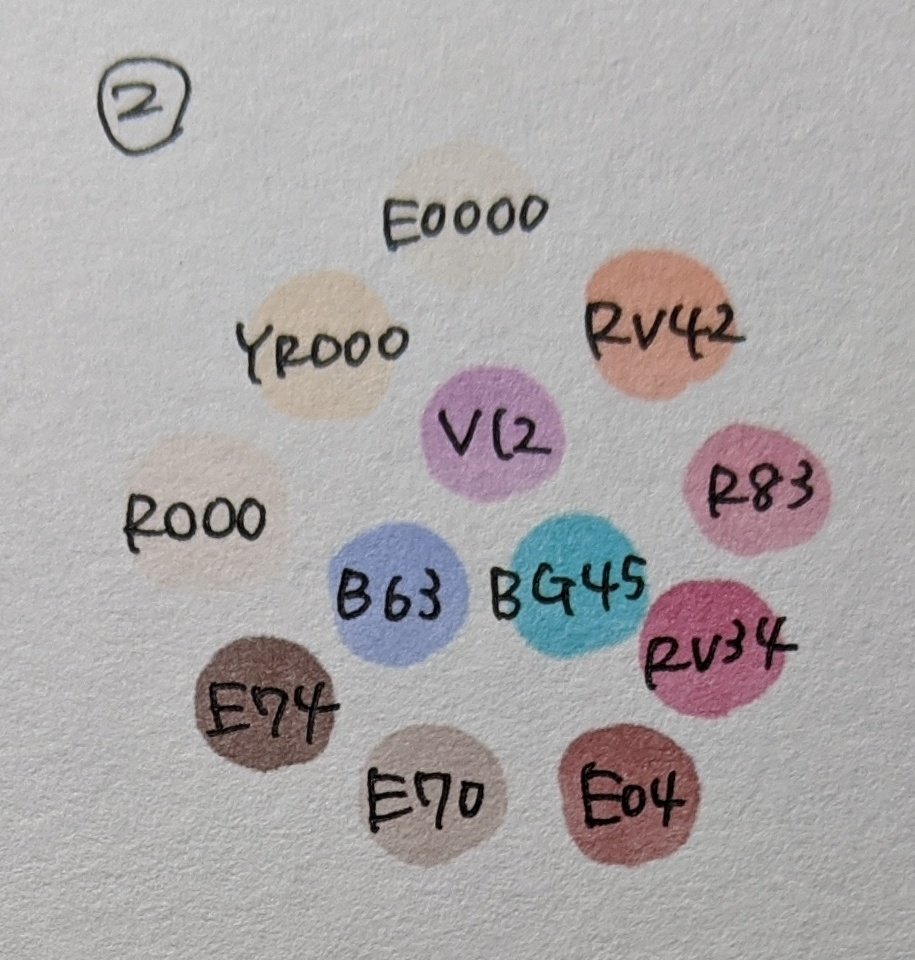 2
E0000
YR000
RV42
V12
R000
R83
B63
BG45
RV34
E74
E70
E04